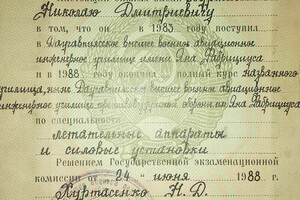 Николаю Дмитриевичу
в том, что он в 1983 году поступил
в Даугавпилское высшее военное авиационное
инженерное училище имени Яна Фабрициуса
и в 1988 году окончил полный курс названного
училища, ныне Даугавпилское высшее военное авиационное
инженерное училище противовоздушной обороны им. Яна Фабрициуса
по специальности
летательные аппараты
и силовые установки
Решением Государственной экзаменационной
комиссии от „24" июня 1988 г.
Хуртасенко Н. Д.